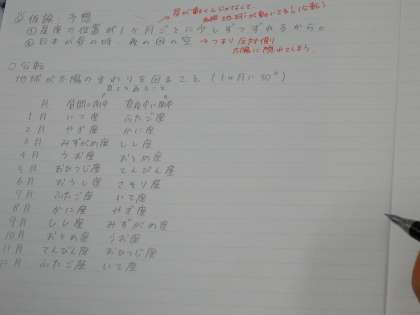 仮説・予想
①星座の位置が1ヶ月ごとに少しずつずれるから。
②日本が昼の時、夜の国の空 → つまり反対側
太陽に
公転
地球が太陽のまわりを回ること (1ヶ月に30°)
月 昼間に南中 真夜中に南中
1月 いて座 ふたご座
2月 やぎ座 かに座
3月 みずがめ座 しし座
4月 うお座 おとめ座
5月 おひつじ座 てんびん座
6月 おうし座 さそり座
7月 ふたご座 いて座
8月 かに座 やぎ座
9月 しし座 みずがめ座
10月 おとめ座 うお座
11月 てんびん座 おひつじ座
12月 ふたご座 いて座